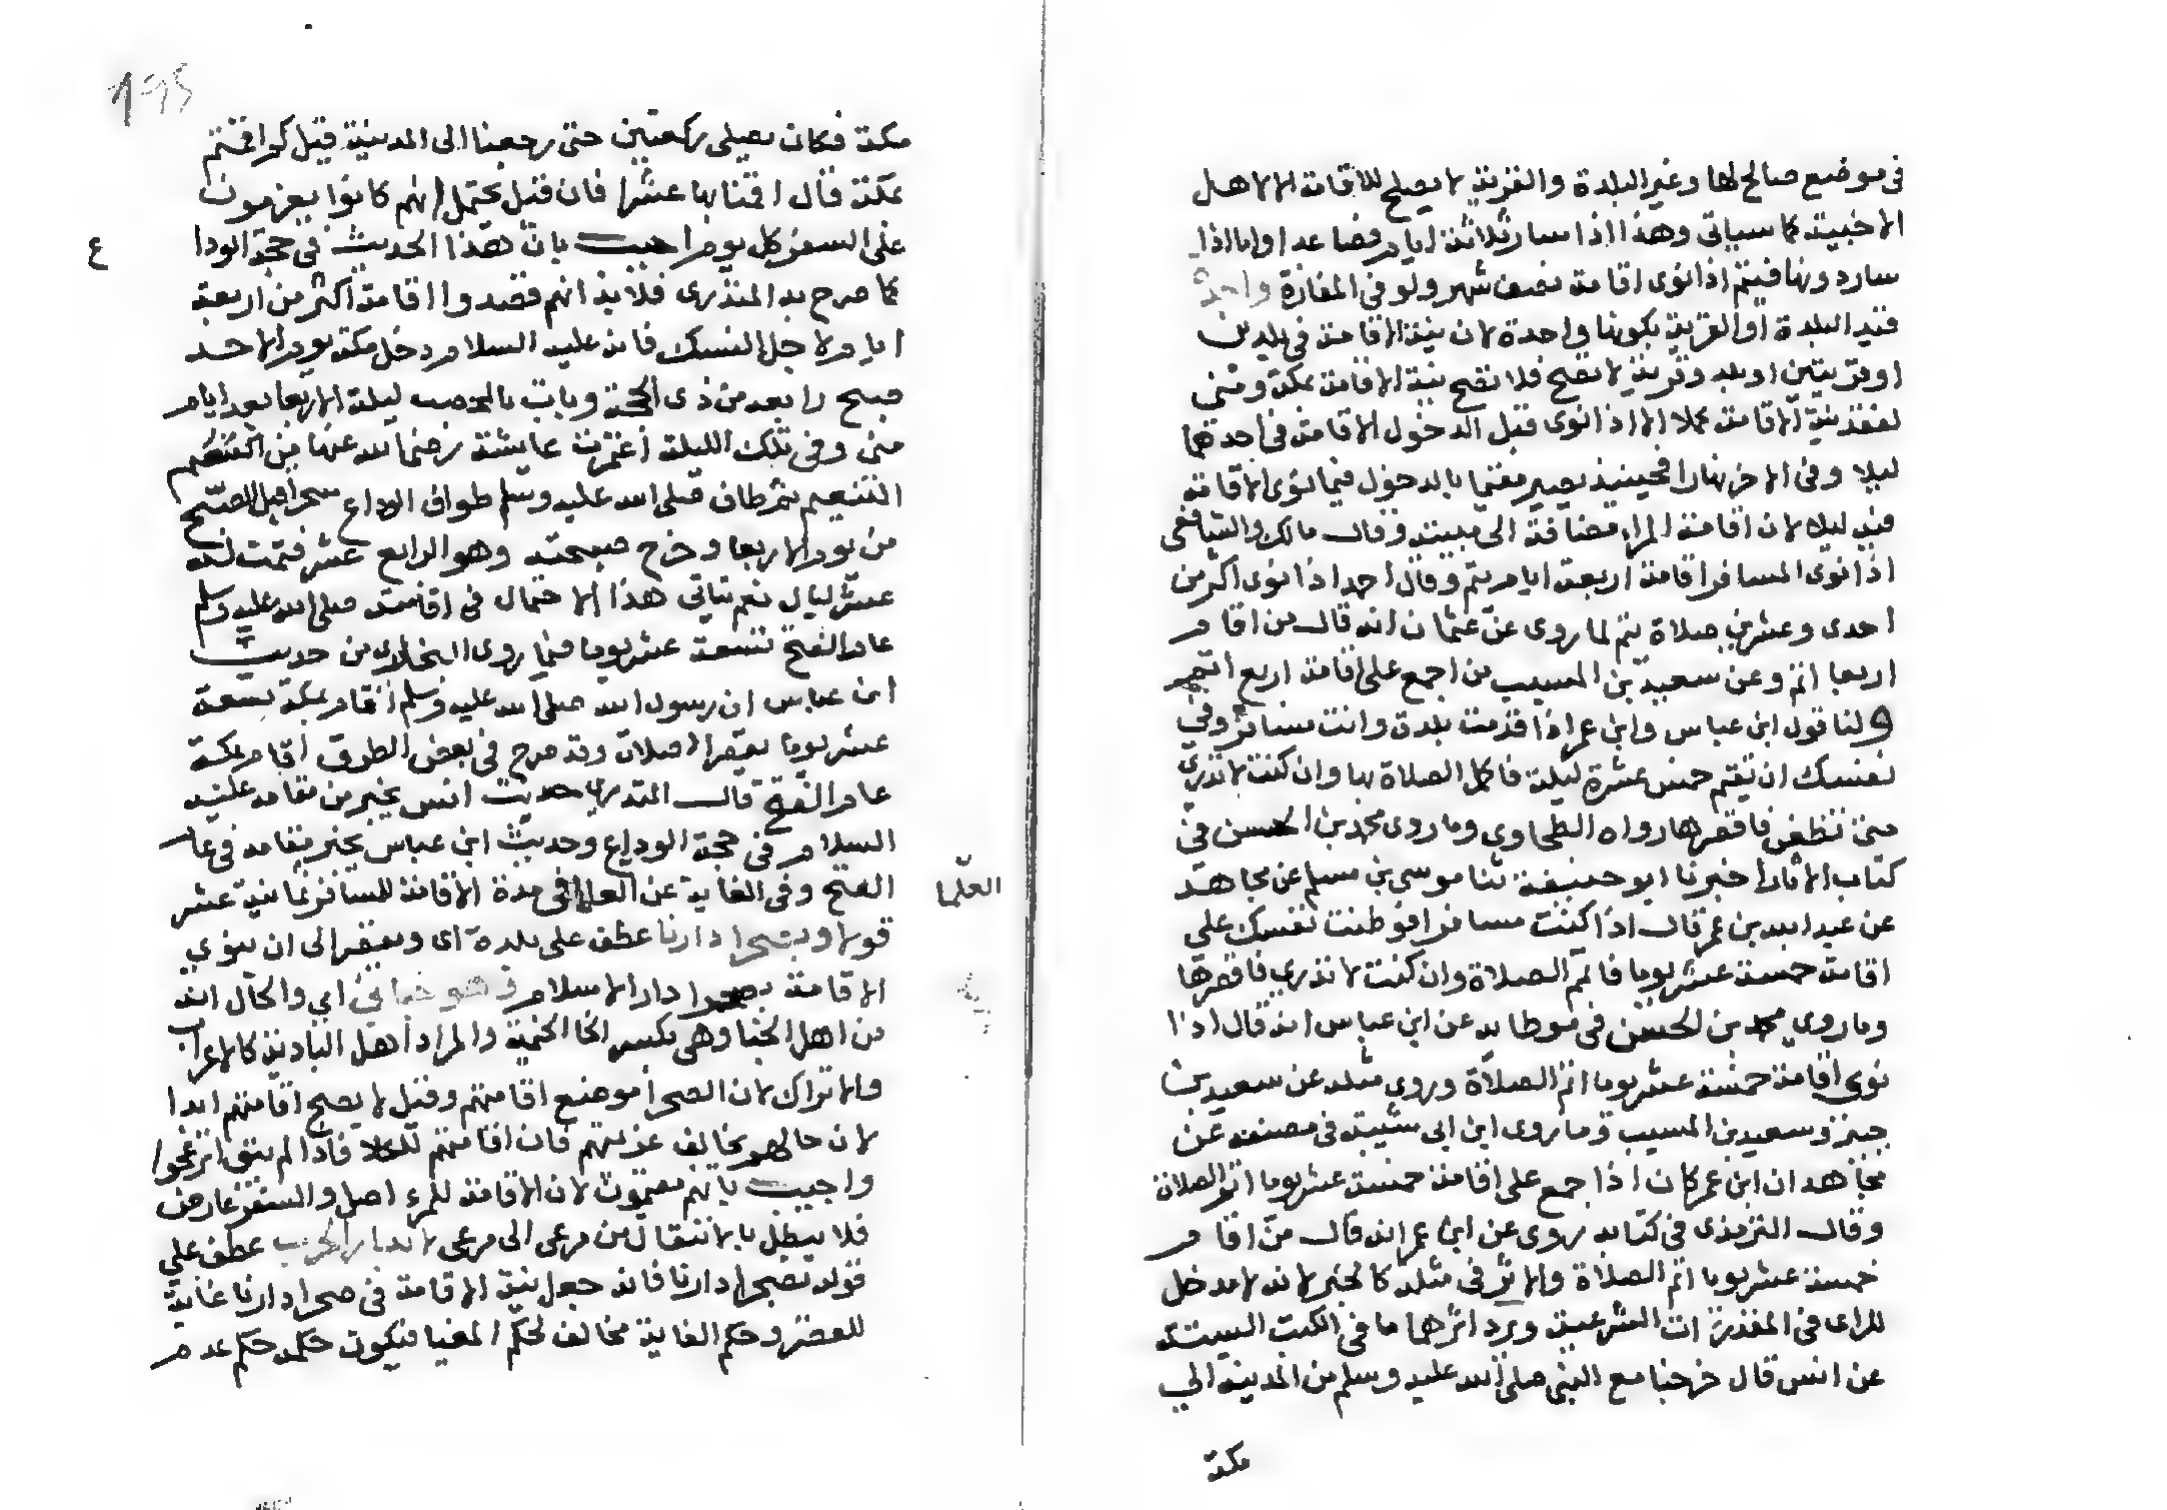 في موضع صالح لها وغير البلدة والقرية لا يصلح للاقامة الا لاهل
الاخبية كما سياتي وهذا اذا سار ثلاثة ايام فصاعدا واما اذا
سار دونها فيتم اذا نوى اقامة نصف شهر ولو في المفازة واحدة
قيد البلدة او القرية بكونها واحدة لان نية الاقامة في بلدين
او قريتين او بلد وقرية لا تصح فلا تصح نية الاقامة بمكة ومنى
لفقد نية الاقامة بمحلا الا اذا نوى قبل الدخول الاقامة في احدهما
ليلا وفي الاخر نهارا فحينيذ يصير مقيما بالدخول فيما نوى الاقامة
فيه ليلا لان اقامة المراء مضافة الى مبيته وقال مالك والشافعي
اذا نوى المسافر اقامة اربعة ايام يتم وقال احمد اذا نوى اكثر من
احدى وعشرين صلاة يتم لما روى عن عثمان انه قال من اقام
اربعا اتم وعن سعيد بن المسيب من اجمع على اقامة اربع اتم
ولنا قول ابن عباس وابن عمر اذا قدمت بلدة وانت مسافر وفي
نفسك ان تقيم خمس عشرة ليلة فاكمل الصلاة بها وان كنت لا تدري
متى تظعن فاقصرها رواه الطحاوي وما روى محمد بن الحسن في
كتاب الاثار اخبرنا ابو حنيفة ثنا موسى بن مسلم عن مجاهد
عن عبد الله بن عمر قال اذا كنت مسافرا فوطنت نفسك على
اقامة خمسة عشر يوما فاتم الصلاة وان كنت لا تدري فاقصرها
وما روي محمد بن الحسن في موطاىه عن ابن عباس انه قال اذا
نوى اقامة خمسة عشر يوما اتم الصلاة وروي مثله عن سعيد بن
جبير وسعيد بن المسيب وما روى ابن ابي شيبة في مصنفه عن
مجاهد ان ابن عمر كان اذا اجمع على اقامة خمسة عشر يوما اتم الصلاة
وقال الترمذي في كتابه روى عن ابن عمر انه قال من اقام
خمسة عشر يوما اتم الصلاة والاثر في مثله كالخبر لانه لا مدخل
للراى في المقدرات الشرعية ويرد اثرهما ما في الكتب الستة
عن انس قال خرجنا مع النبي صلى الله عليه وسلم من المدينة الي
مكة
مكة فكان يصلى ركعتين حتى رجعنا الى المدينة قيل كم اقمتم
بمكة قال اقمنا بها عشرا فان قيل يحتمل انهم كانوا يعزمون
على السفر كل يوم اجيب بان هذا الحديث في حجة الودا
ع
كما صرح به المنذري فلا بد انهم قصدوا اقامة اكثر من اربعة
ايام لاجل النسك فانه عليه السلام دخل مكة يوم الاحد
صبح رابعة من ذي الحجة وبات بالمحصب ليلة الاربعا بعد ايام
منى وفي تلك الليلة اعتمرت عايشة رضي الله عنها من التنعيم
التنعيم ثم طاف صلى الله عليه وسلم طواف الوداع سحرا قبل الصبح
من يوم الاربعا وخرج صبيحته وهو الرابع عشر فتمت له
عشر ليال نعم يتاتي هذا الاحتمال في اقامته صلى الله عليه وسلم
عام الفتح تسعة عشر يوما فيما روى البخاري من حديث
ابن عباس ان رسول الله صلى الله عليه وسلم اقام بمكة تسعة
عشر يوما يقصر الصلاة وقد صرح في بعض الطرق اقام بمكة
عام الفتح قال المنذري حديث انس يخبر من مقامه عليه
السلام في حجة الوداع وحديث ابن عباس يخبر بمقامه في عام
الفتح وفي الغاية عن العلما في مدة الاقامة للمسافر ثمانية عشر
العلما
قولا وبصحرا دارنا عطف على بلدة اى ويقصر الى ان ينوي
الاقامة بصحرا دار الاسلام وهو خباىي ايي والحال انه
من اهل الخبا وهي بكسر الخا الخيمة والمراد اهل البادية كالاعراب
والاتراك لان الصحرا موضع اقامتهم وقيل لا يصح اقامتهم ابدا
لان حالهم يخالف عزيمتهم فان اقامتهم للكلا فاذا لم يبق انزعجوا
واجيب بانهم مقيموت لان الاقامة للمرء اصل والسفر عارض
فلا يبطل بالانتقال من مرعى الى مرعى لا بدار الحرب عطف علي
قوله بصحرا دارنا فانه جعل نية الاقامة في صحرا دارنا غاية
للقصر وحكم الغاية مخالف لحكم المغيا فيكون حكمه حكم عدم